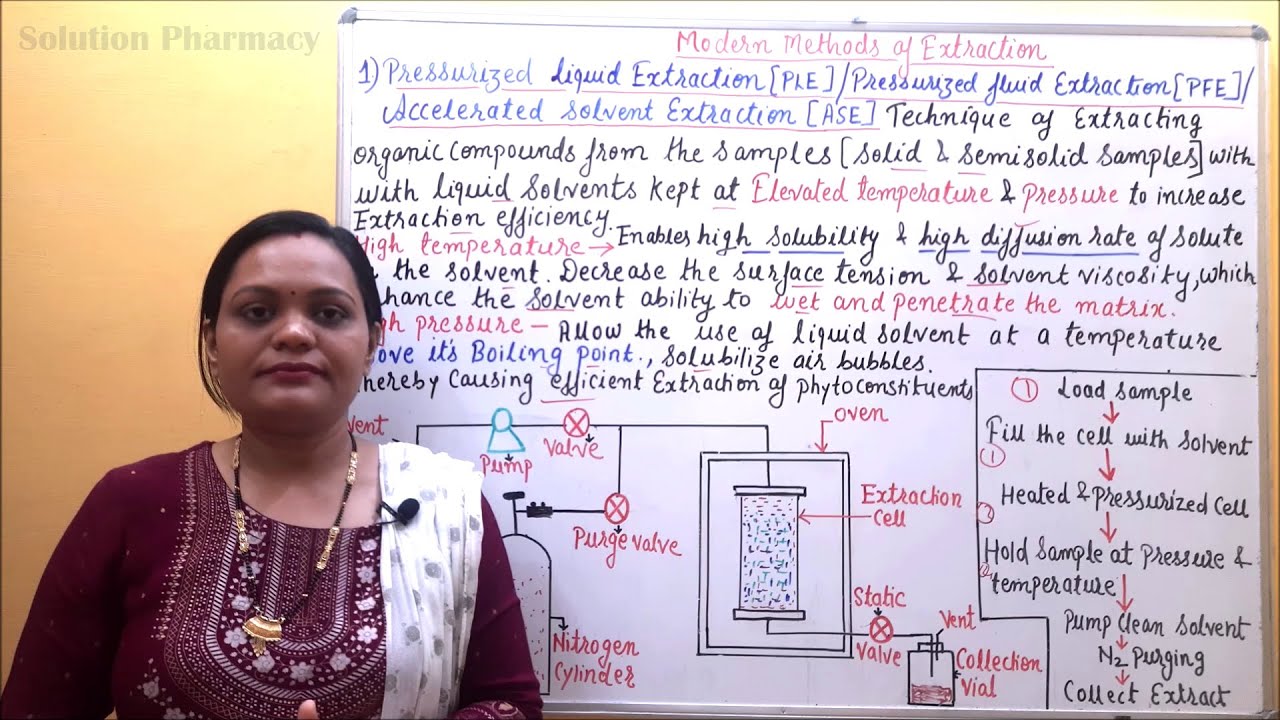 Solution Pharmacy
Modern Methods of Extraction
1) Pressurized liquid Extraction [PLE] / Pressurized fluid Extraction [PFE] /
Accelerated Solvent Extraction [ASE] Technique of Extracting
organic compounds from the samples [solid & semisolid samples] with
with liquid solvents kept at Elevated temperature & pressure to increase
Extraction efficiency.
High temperature → Enables high solubility & high diffusion rate of solute
the solvent. Decrease the surface tension & solvent viscosity, which
the solvent ability to wet and penetrate the matrix.
pressure - Allow the use of liquid solvent at a temperature
it's Boiling point., solubilize air bubbles.
Causing efficient Extraction of phytoconstituents
vent
Pump
Valve
Purge valve
Nitrogen
Cylinder
oven
Extraction
Cell
Static
valve
Vent
Collection
Vial
① Load sample
↓
Fill the cell with solvent
①
↓
② Heated & Pressurized Cell
↓
Hold Sample at Pressure &
temperature
↓
Pump Clean Solvent
↓
N₂ Purging
↓
Collect Extract